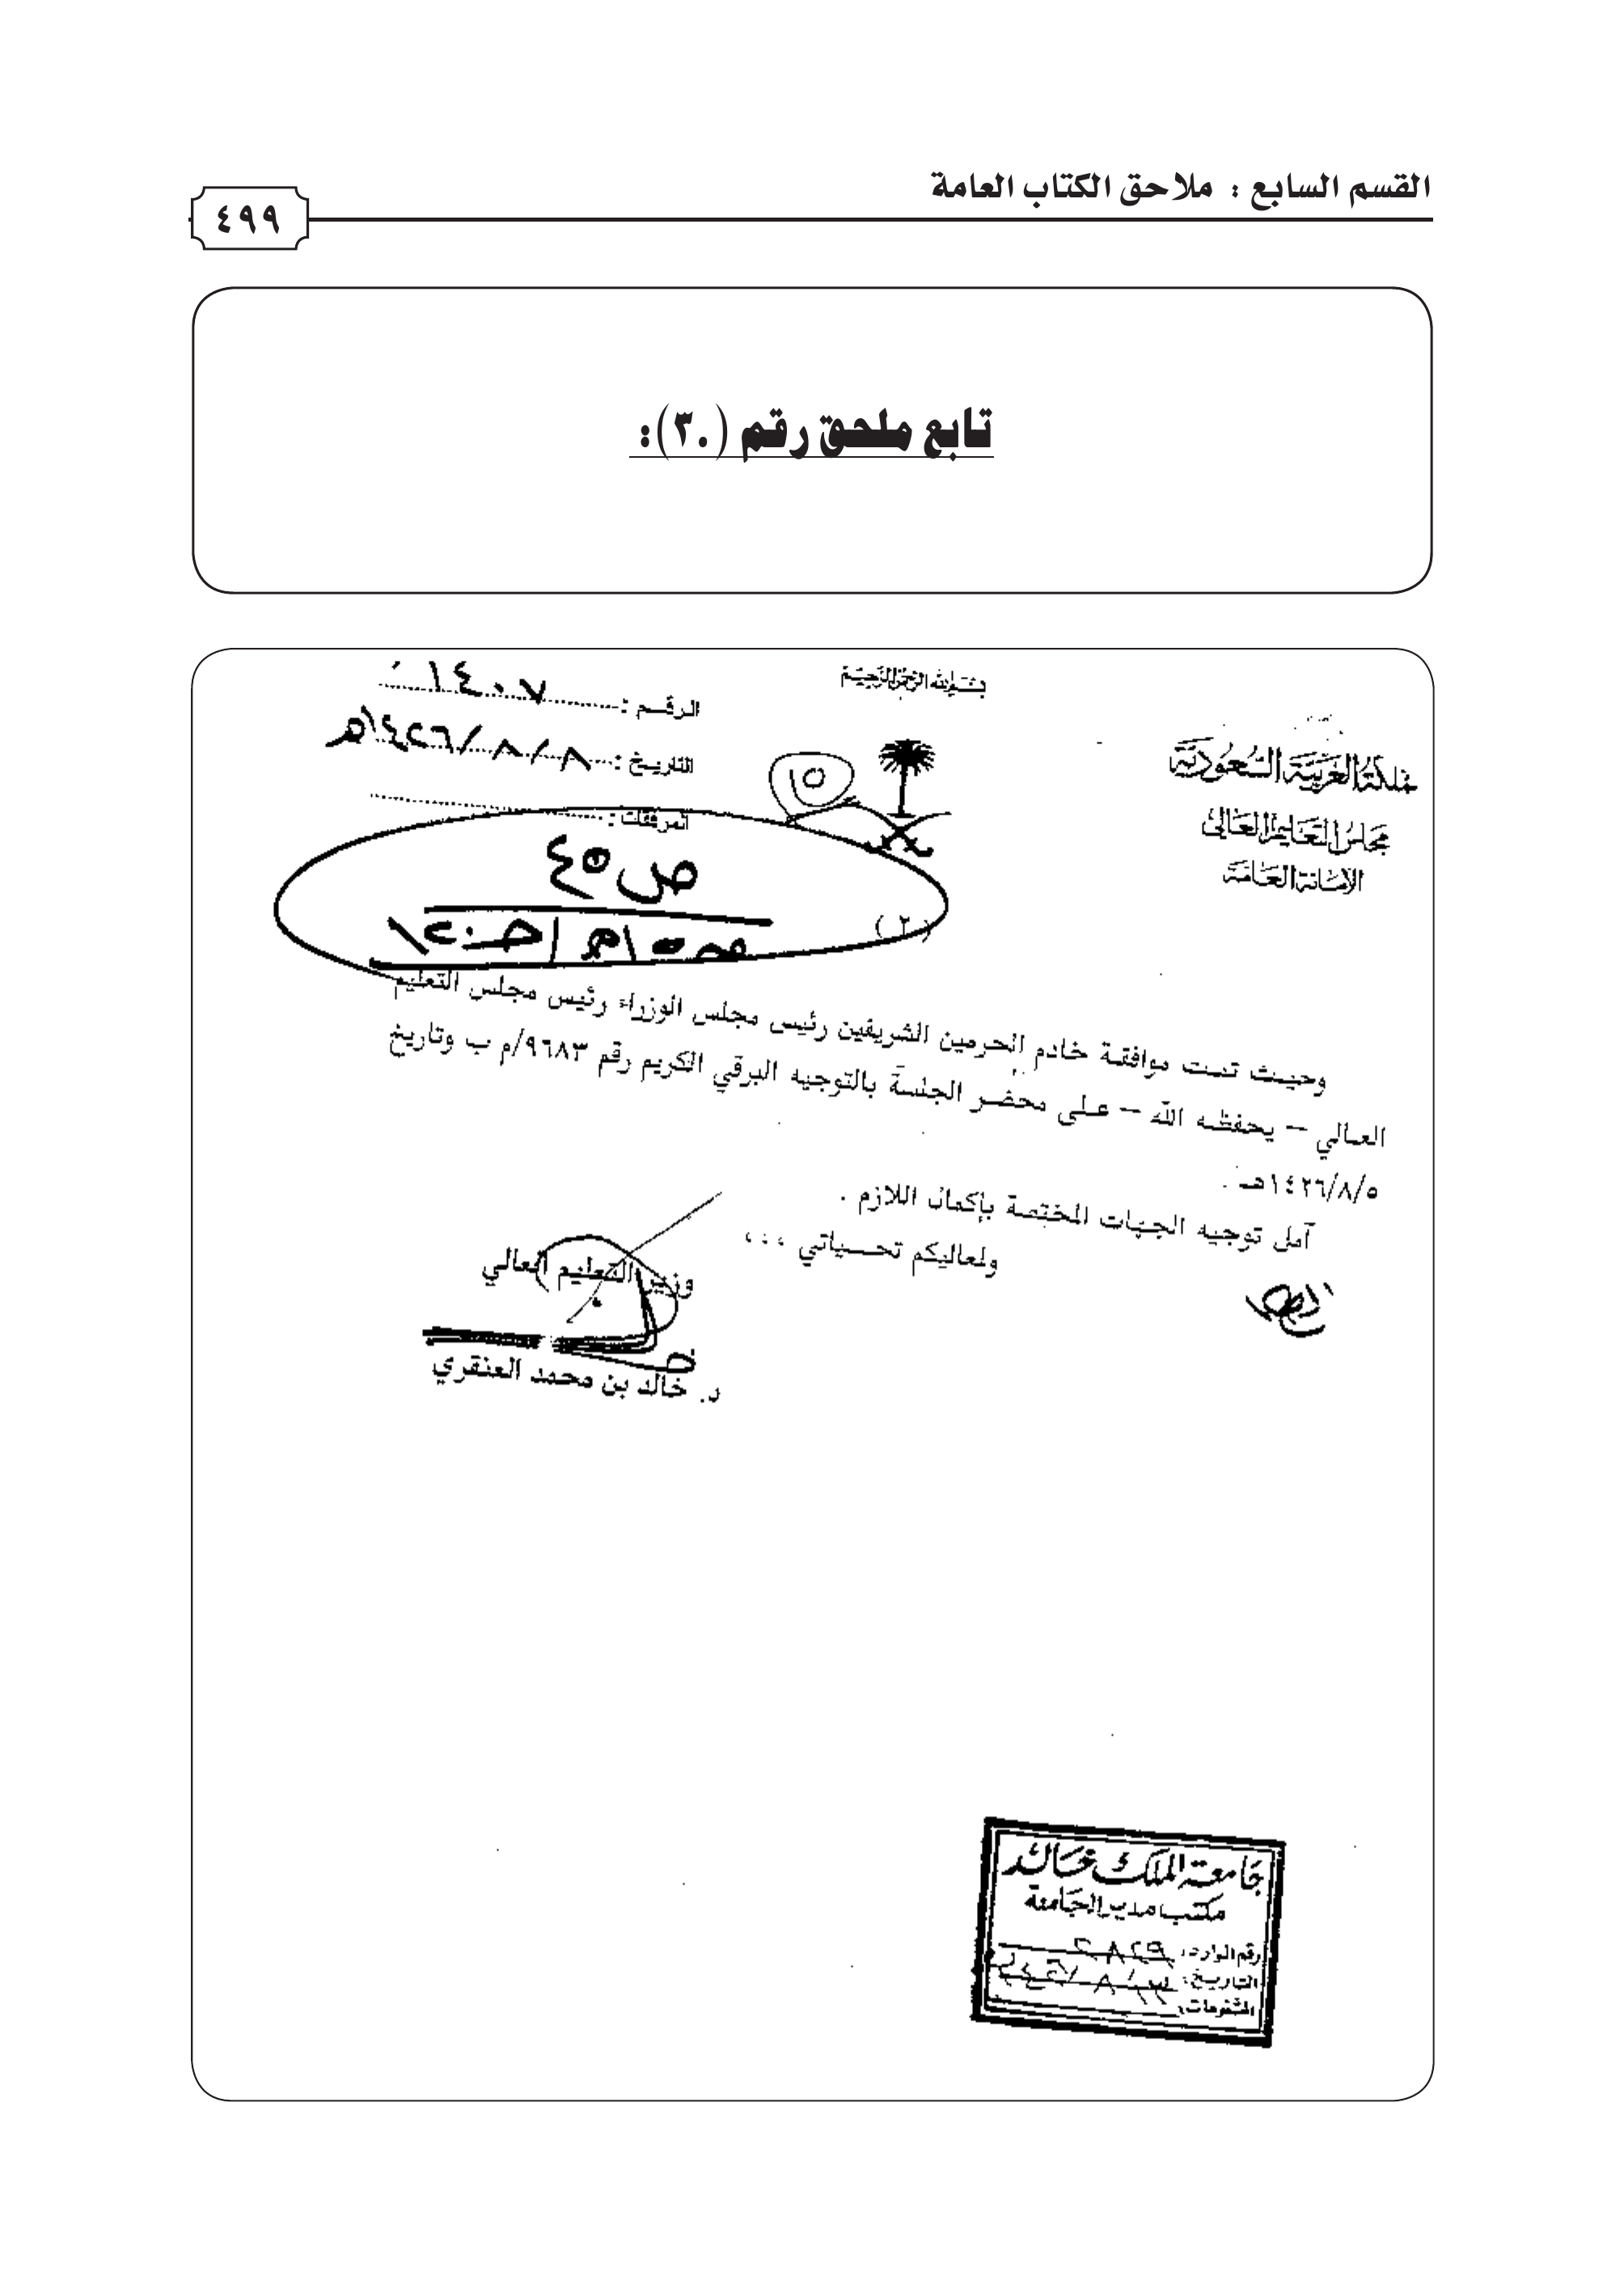 القسم السابع : ملاحق الكتاب العامة
٤٩٩
تابع ملحق رقم (٣٠):
بسم الله الرحمن الرحيم
المملكة العربية السعودية
مجلس التعليم العالي
الأمانة العامة
الرقم : ١٤٠٧
التاريخ : ٨/٨/١٤٢٦هـ
المرفقات :
ص ٤٥
(٢)
وحيث تمت موافقة خادم الحرمين الشريفين رئيس مجلس الوزراء رئيس مجلس التعليم
العالي – يحفظه الله – على محضر الجلسة بالتوجيه البرقي الكريم رقم ٩٦٨٣/م ب وتاريخ
١٤٢٦/٨/٥هـ .
آمل توجيه الجهات المختصة بإكمال اللازم .
ولمعاليكم تحياتي ،،،
وزير التعليم العالي
د. خالد بن محمد العنقري
جامعة الملك خالد
مكتب مدير الجامعة
رقم الوارد:
التاريخ:
المشفوعات: